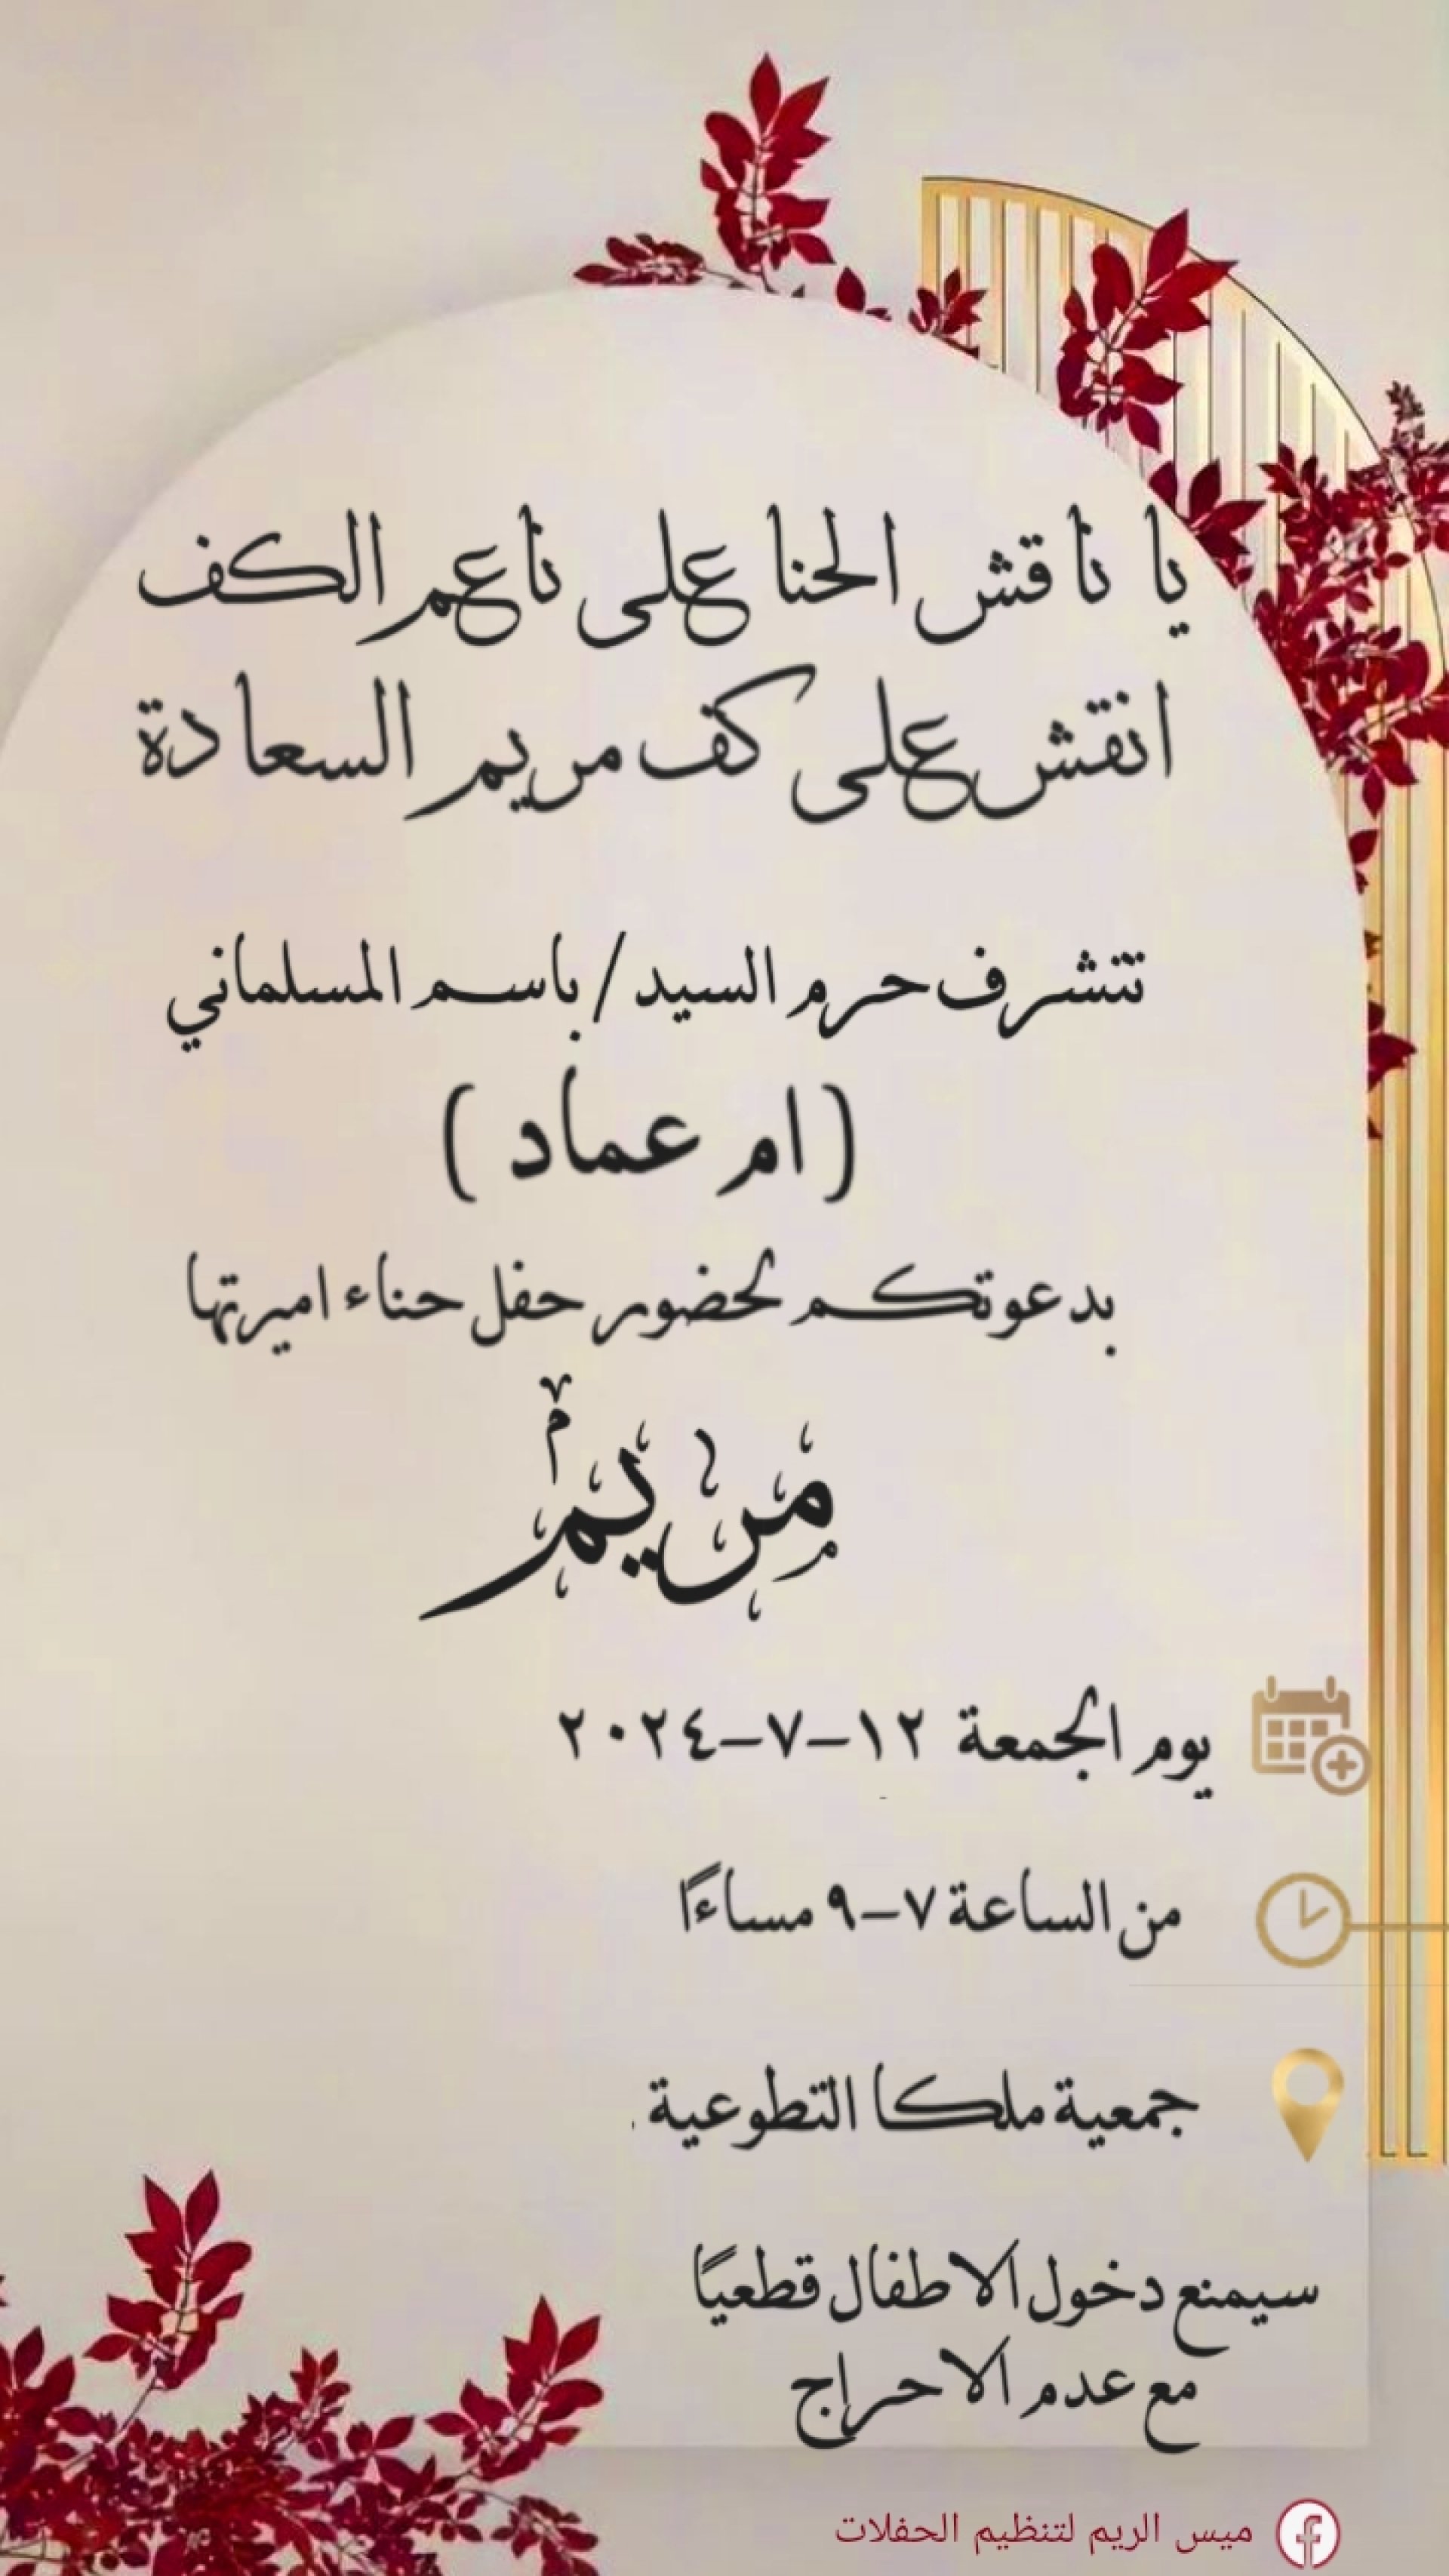 يا ناقش الحنا على ناعم الكف
انقش على كف مريم السعادة
تتشرف حرم السيد / باسم المسلماني
( ام عماد )
بدعوتكم لحضور حفل حناء اميرتها
مريم
يوم الجمعة ١٢-٧-٢٠٢٤
من الساعة ٧-٩ مساءًا
جمعية ملكا التطوعية .
سيمنع دخول الاطفال قطعيًا
مع عدم الاحراج
ميس الريم لتنظيم الحفلات